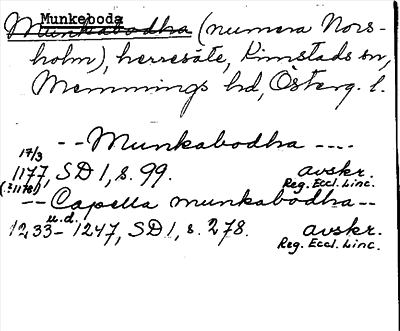 Munkeboda
Munkabodha (numera Nors-
holm), herresäte, Kimstads sn,
Memmings hd, Österg. l.
--Munkabodha ----
17/3
1177, SD 1, s. 99. avskr.
(?1178) Reg. Eccl. Linc.
--Capella munkabodha--
u.d.
1233-1247, SD 1, s. 278. avskr.
Reg. Eccl. Linc.